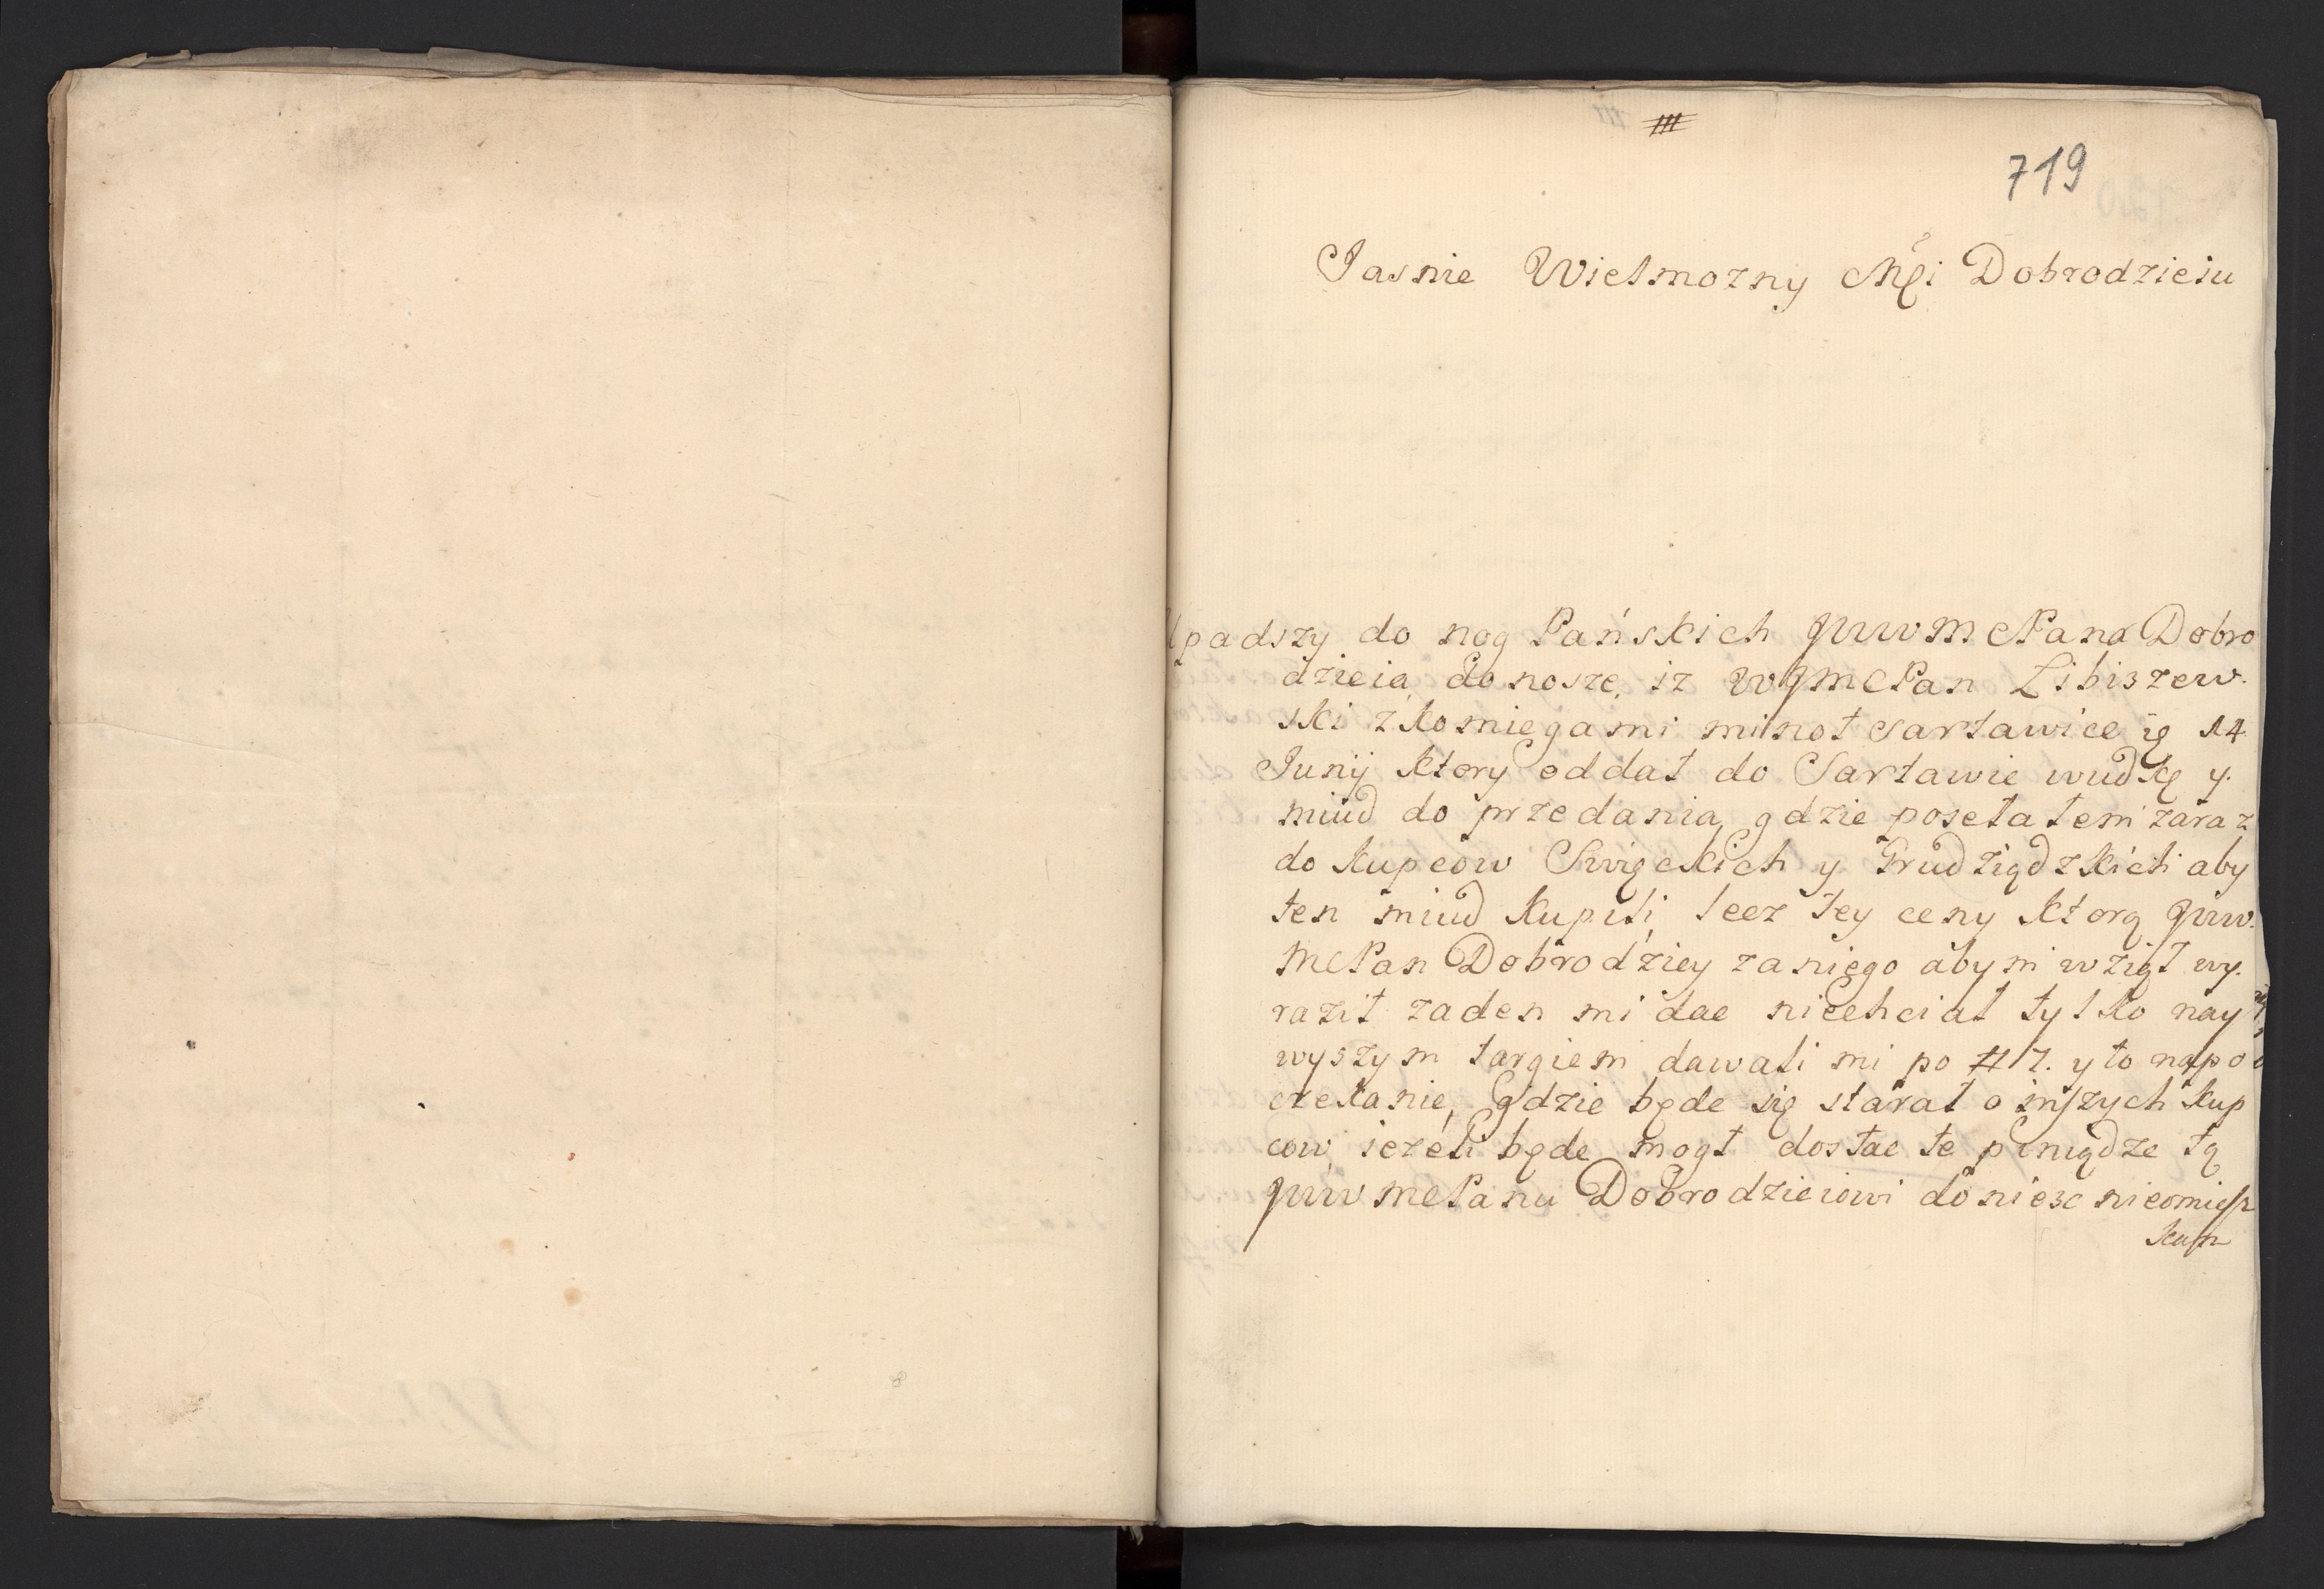 III
719
Jasnie Wielmozny Mći Dobrodzieiu
Upadszy do nog Pańskich JWWM Pana Dobro
dzieia, donoszę, iz WJM Pan Libiszew-
ski z komiegami minoł Sartawice ig 14
Junij ktory oddał do Sartawic wudkę y.
miud do przedania, gdzie posełałem zaraz
do kupcow Swięckich y Grudziądzkich aby
ten miud kupili, lecz tey ceny ktorą JWW.
M Pan Dobrodziey za niego abym wziął wy.
raził zaden mi dac niechciał tylko nay
wyszym targiem dawali mi po # 7. y to na po
czekanie, gdzie będe się starał o inszych kup
cow, iezeli będe mogł dostac te piniądze tą
JWW M Panu Dobrodzieiowi doniesc nieomiesz
kam